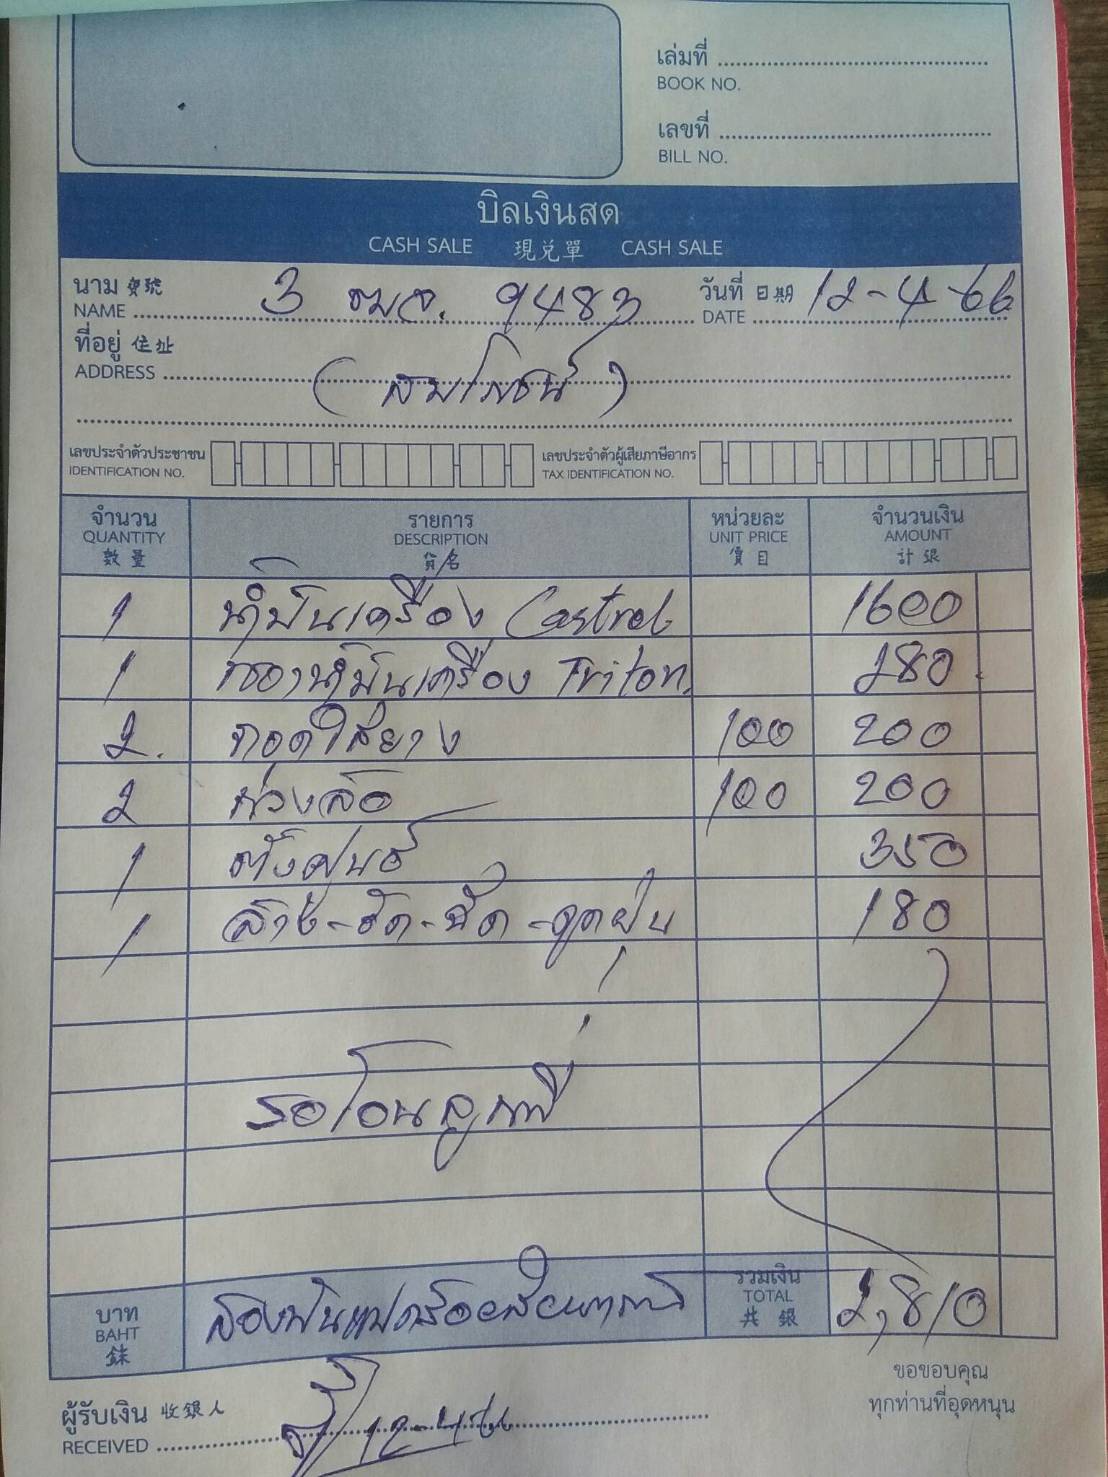 เล่มที่
BOOK NO.
เลขที่
BILL NO.
บิลเงินสด
CASH SALE 現兌單 CASH SALE
นาม 寶號 3 ฒฉ. 9483 วันที่ 日期 12-4-66
NAME DATE
ที่อยู่ 住址
ADDRESS (สมโภชน์)
เลขประจำตัวประชาชน เลขประจำตัวผู้เสียภาษีอากร
IDENTIFICATION NO. TAX IDENTIFICATION NO.
จำนวน รายการ หน่วยละ จำนวนเงิน
QUANTITY DESCRIPTION UNIT PRICE AMOUNT
數量 貨名 價目 計銀
1 น้ำมันเครื่อง Castrol 1600
1 กรองน้ำมันเครื่อง Triton 280
2 ถอดใส่ยาง 100 200
2 ถ่วงล้อ 100 200
1 ตั้งศูนย์ 350
1 ล้าง-อัด-ฉีด-ดูดฝุ่น 180
รอโอน
บาท สองพันแปดร้อยสิบบาท รวมเงิน 2,810
BAHT TOTAL
銖 共銀
ขอขอบคุณ
ทุกท่านที่อุดหนุน
ผู้รับเงิน 收銀人
RECEIVED 12-4-66